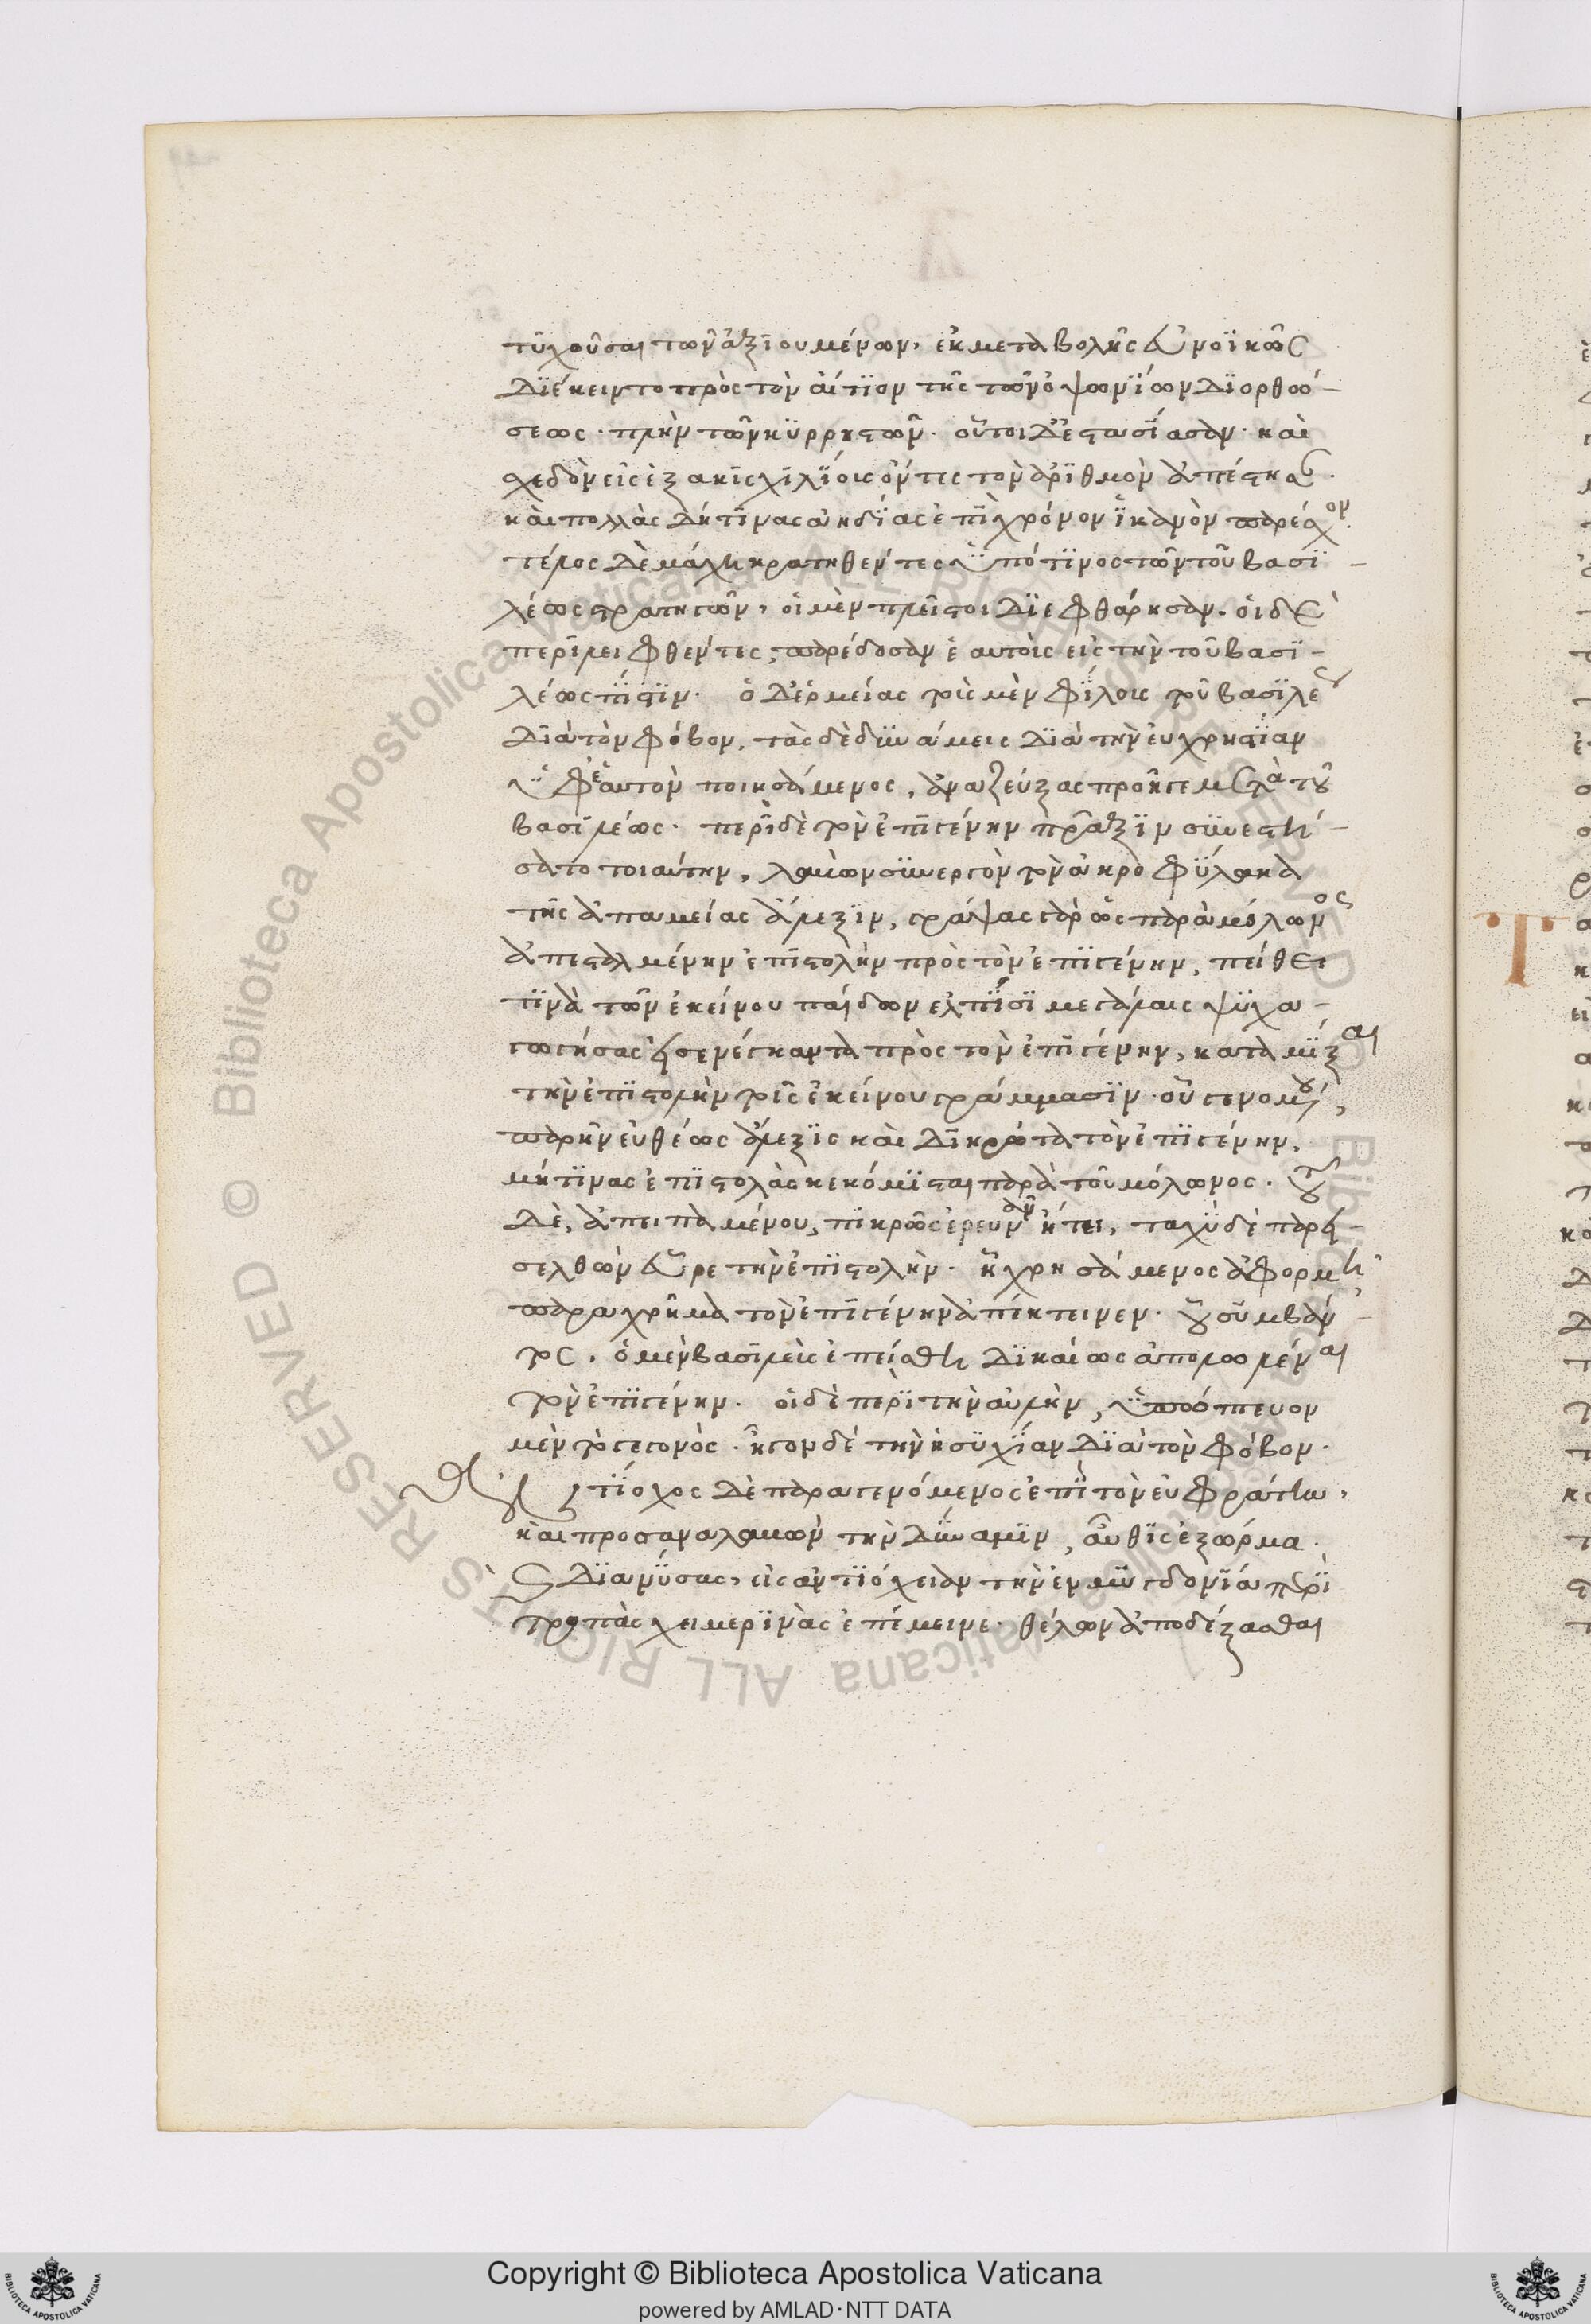 τυχοῦσαι τῶν ἀξιουμένων, ἐκ μεταβολῆς εὐνοϊκῶς
διέκειντο πρὸς τὸν αἴτιον τῆς τῶν ὀψωνίων διορθώ-
σεως. πλὴν τῶν κυρρηστῶν. οὗτοι δ' ἐστασίασαν. καὶ
σχεδὸν εἰς ἑξακισχιλίους ὄντες τὸν ἀριθμὸν ἀπέστησαν.
καὶ πολλὰς δή τινας ἀηδίας ἐπὶ χρόνον ἱκανὸν παρέσχον.
τέλος δὲ μάχῃ κρατηθέντες ὑπό τινος τῶν τοῦ βασι-
λέως στρατηγῶν, οἱ μὲν πλεῖστοι διεφθάρησαν. οἱ δὲ
περιλειφθέντες, παρέδοσαν ἑαυτοὺς εἰς τὴν τοῦ βασι-
λέως πίστιν. ὁ δ' ἑρμείας τοὺς μὲν φίλους τοῦ βασιλέως
διὰ τὸν φόβον, τὰς δὲ δυνάμεις διὰ τὴν εὐχρηστίαν
ὑφ' ἑαυτὸν ποιησάμενος, ἀναζεύξας προῆγε μετὰ τοῦ
βασιλέως. περὶ δὲ τὸν ἐπιγένην πρᾶξιν συνεστή-
σατο τοιαύτην, λαβὼν συνεργὸν τὸν ἀκροφύλακα
τῆς ἀπαμείας ἄλεξιν, γράψας γὰρ ὡς παρὰ μόλωνος
ἀπεσταλμένην ἐπιστολὴν πρὸς τὸν ἐπιγένην, πείθει
τινὰ τῶν ἐκείνου παίδων ἐλπίσι μεγάλαις ψυχα-
γωγήσας εἰσενέγκαντα πρὸς τὸν ἐπιγένην, καταμῖξαι
τὴν ἐπιστολὴν τοῖς ἐκείνου γράμμασιν. οὗ γενομένου,
παρῆν εὐθέως ἄλεξις καὶ διηρώτα τὸν ἐπιγένην,
μή τινας ἐπιστολὰς κεκόμισται παρὰ τοῦ μόλωνος. τοῦ
δὲ, ἀπειπαμένου, πικρῶς ἐρευνᾶν ᾔτει, ταχὺ δὲ παρει-
σελθὼν εὗρε τὴν ἐπιστολὴν. ᾗ χρησάμενος ἀφορμῇ
παραχρῆμα τὸν ἐπιγένην ἀπέκτεινεν. οὗ συμβάν-
τος, ὁ μὲν βασιλεὺς ἐπείσθη δικαίως ἀπολωλέναι
τὸν ἐπιγένην. οἱ δὲ περὶ τὴν αὐλὴν, ὑπώπτευον
μὲν τὸ γεγονὸς. ἦγον δὲ τὴν ἡσυχίαν διὰ τὸν φόβον.
ἀντίοχος δὲ παραγενόμενος ἐπὶ τὸν εὐφράτην,
καὶ προσαναλαβὼν τὴν δύναμιν, αὖθις ἐξώρμα.
καὶ διανύσας, εἰς ἀντιόχειαν τὴν ἐν μυγδονίᾳ περὶ
τροπὰς χειμερινὰς ἐπέμεινε. θέλων ἀποδέξασθαι
Copyright © Biblioteca Apostolica Vaticana
powered by AMLAD·NTT DATA